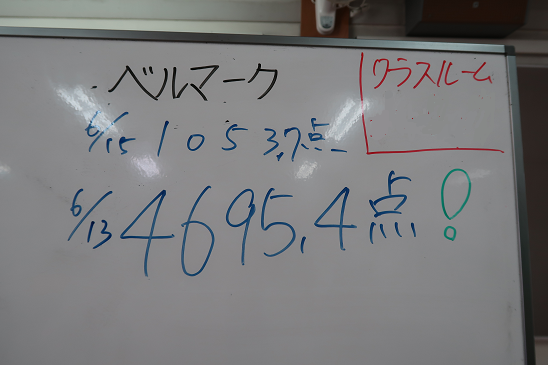 ベルマーク
クラスルーム
6/15 1053.7点
6/13 4695.4点!